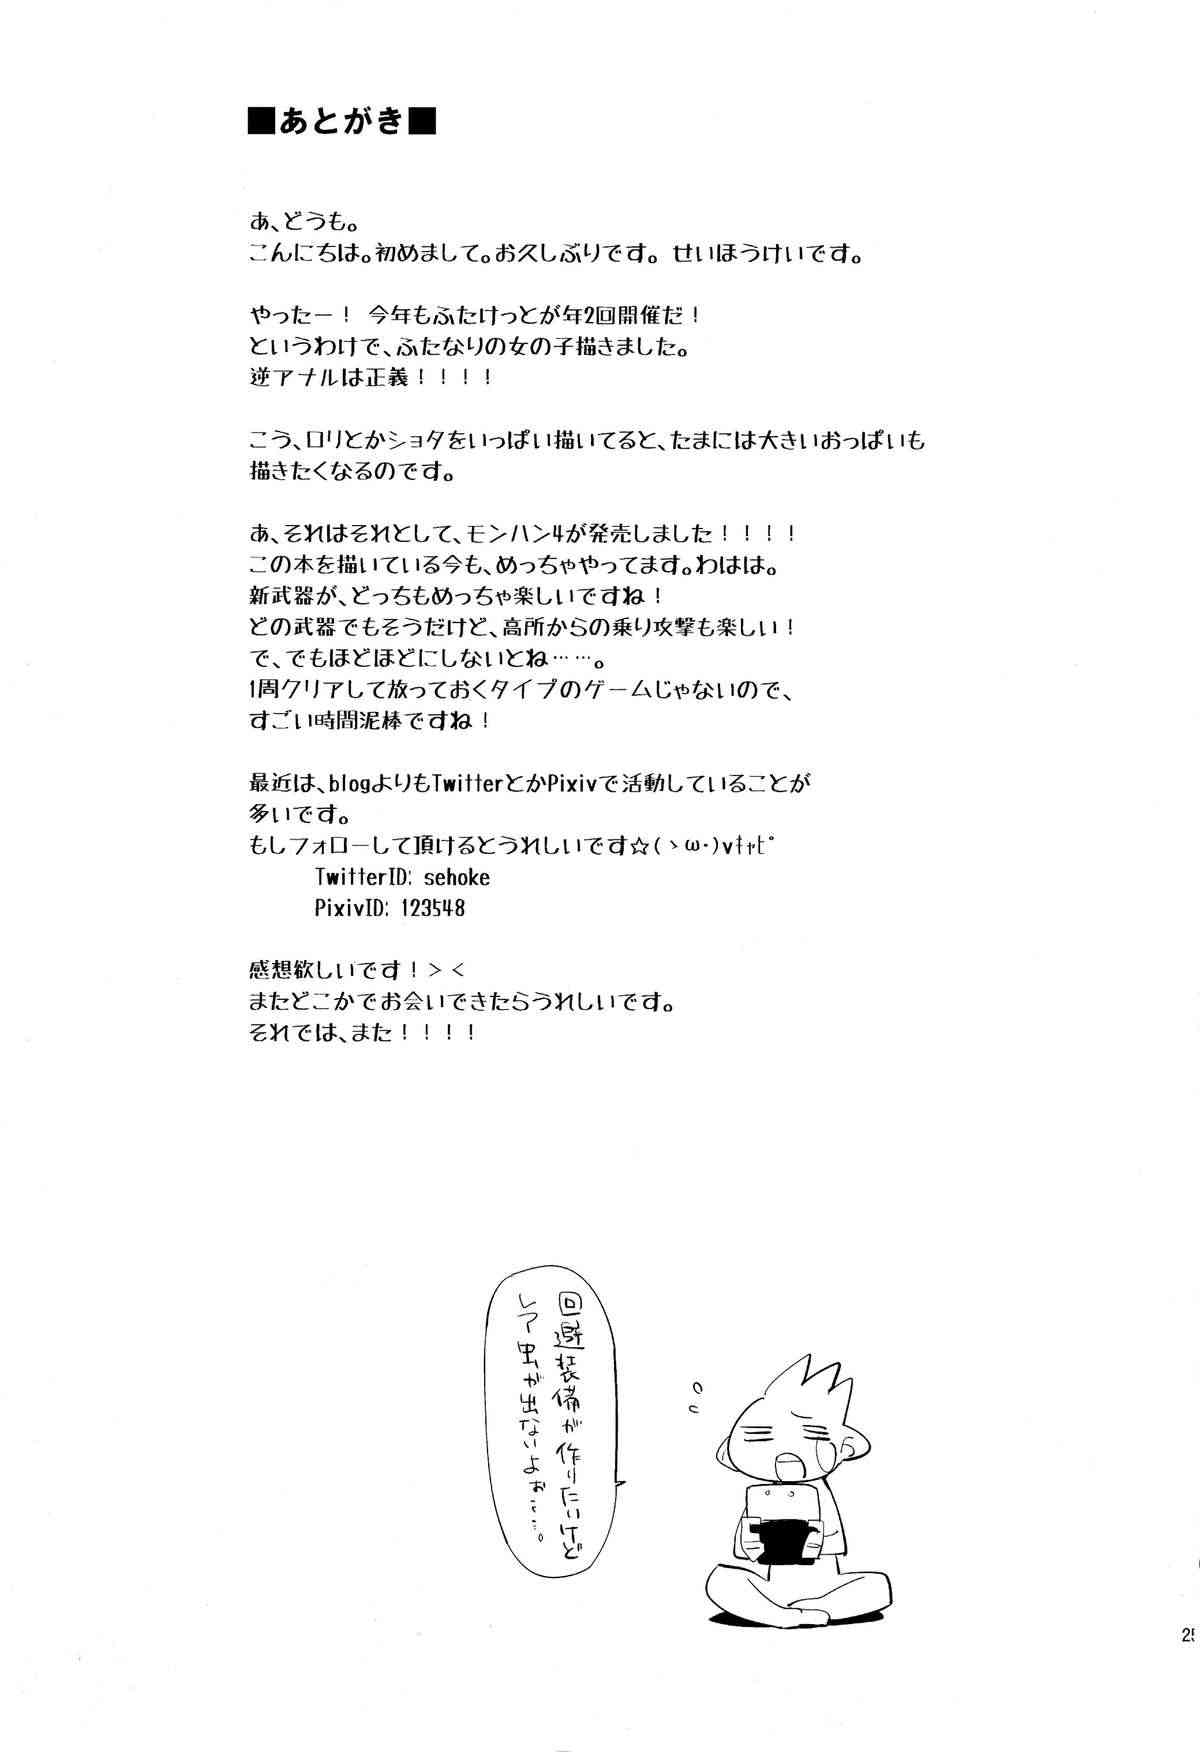 ■あとがき■
あ、どうも。
こんにちは。初めまして。お久しぶりです。 せいほうけいです。
やったー！ 今年もふたけっとが年2回開催だ！
というわけで、ふたなりの女の子描きました。
逆アナルは正義！！！！
こう、ロリとかショタをいっぱい描いてると、たまには大きいおっぱいも
描きたくなるのです。
あ、それはそれとして、モンハン4が発売しました！！！！
この本を描いている今も、めっちゃやってます。わはは。
新武器が、どっちもめっちゃ楽しいですね！
どの武器でもそうだけど、高所からの乗り攻撃も楽しい！
で、でもほどほどにしないとね……。
1周クリアして放っておくタイプのゲームじゃないので、
すごい時間泥棒ですね！
最近は、blogよりもTwitterとかPixivで活動していることが
多いです。
もしフォローして頂けるとうれしいです☆(ゝω・)vｷｬﾋﾟ
TwitterID: sehoke
PixivID: 123548
感想欲しいです！＞＜
またどこかでお会いできたらうれしいです。
それでは、また！！！！
回避装備が作りたいけど
レア虫が出ないよぉ……。
25